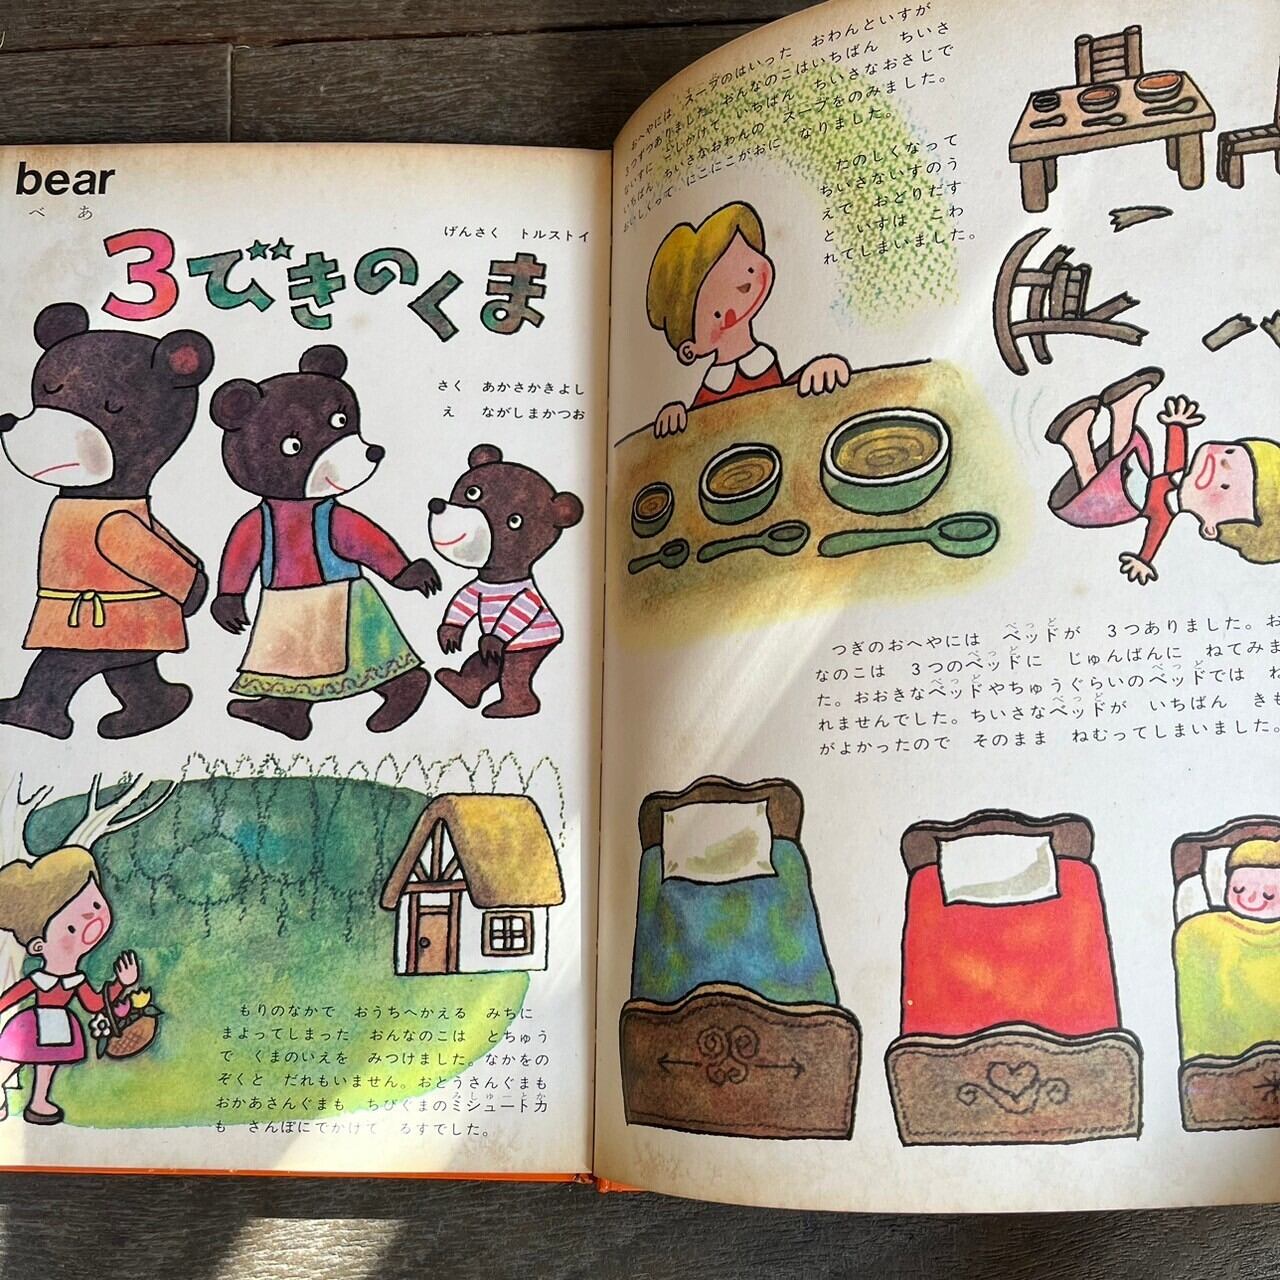 bear
べあ
げんさく　トルストイ
3びきのくま
さく　あかさかきよし
え　ながしまかつお
もりのなかで　おうちへかえる　みちに
まよってしまった　おんなのこは　とちゅう
で　くまのいえを　みつけました。なかをの
ぞくと　だれもいません。おとうさんぐまも
みしゅーとか
おかあさんぐまも　ちびぐまのミシュートカ
も　さんぽにでかけて　るすでした。
おへやには　スープのはいった　おわんといすが
3つずつありました。おんなのこはいちばん　ちいさ
ないすに　こしかけて　いちばん　ちいさなおさじで
いちばん　ちいさなおわんの　スープをのみました。
おいしくって　にこにこがおに　なりました。
たのしくなって
ちいさないすのう
えで　おどりだす
と　いすは　こわ
れてしまいました。
べっど
つぎのおへやには　ベッドが　3つありました。お
べっど　べっど
なのこは　3つのベッドに　じゅんばんに　ねてみま
べっど
た。おおきなベッドやちゅうぐらいのベッドでは　ね
べっど
れませんでした。ちいさなベッドが　いちばん　きも
がよかったので　そのまま　ねむってしまいました。